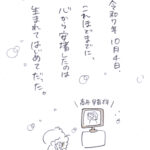 令和7年10月4日、
これほどまでに、
心から安堵したのは
生まれてはじめてだった。